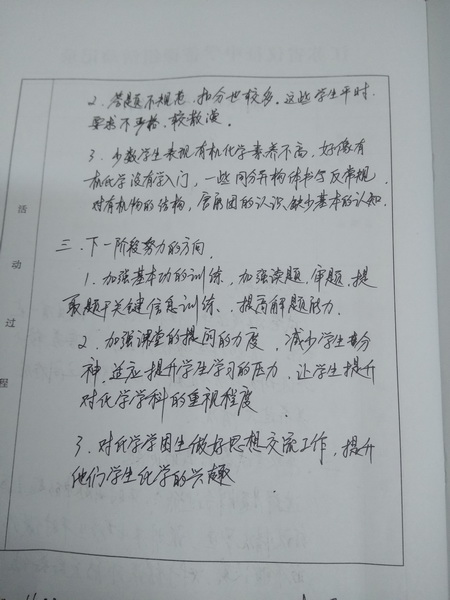 2、答题不规范，扣分也较多。这些学生平时
要求不严格，较散漫。
3、少数学生表现有机化学素养不高，好像有
机化学没有学入门，一些同分异构体书写反常规，
对有机物的结构，官能团的认识缺少基本的认知。
三、下一阶段努力的方向
1、加强基本功的训练，加强读题，审题，提
取题干关键信息训练、提高解题能力.
2、加强课堂的提问的力度，减少学生分
神，适应提升学生学习的压力，让学生提升
对化学学科的重视程度
3、对化学学困生做好思想交流工作，提升
他们学生化学的兴趣
活
动
过
程